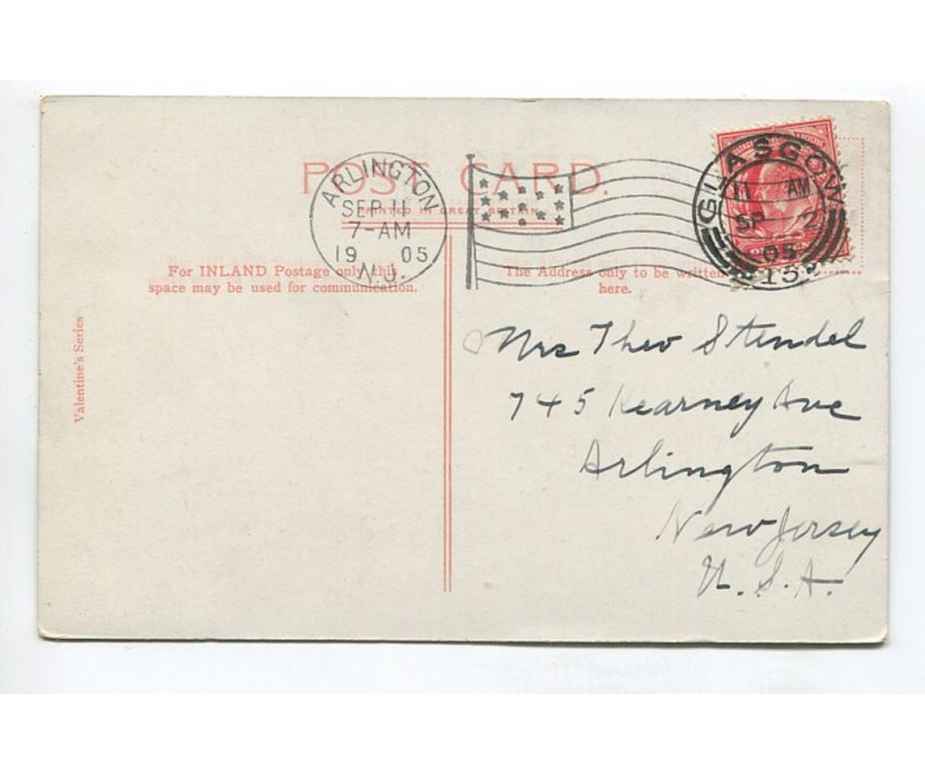 POST CARD.
PRINTED IN GREAT BRITAIN
ARLINGTON
SEP 11
7-AM
19 05
N.J.
GLASGOW
11 AM
SP 2
05
For INLAND Postage only this
space may be used for communication.
The Address only to be written
here.
Valentine's Series
Mrs Theo Stendel
745 Kearney Ave
Arlington
New Jersey
U.S.A.